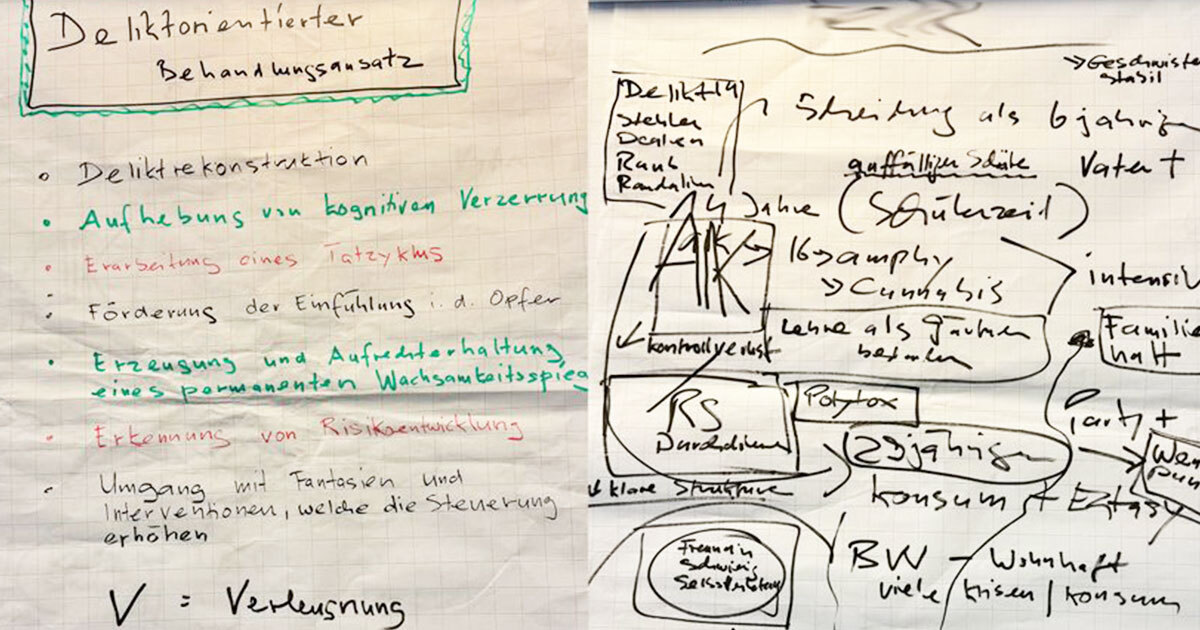 Deliktorientierter
Behandlungsansatz
Deliktrekonstruktion
Aufhebung von kognitiven Verzerrung
Erarbeitung eines Tatzyklus
Förderung der Einfühlung i. d. Opfer
Erzeugung und Aufrechterhaltung
eines permanenten Wachsamkeitsspieg
Erkennung von Risikoentwicklung
Umgang mit Fantasien und
Interventionen, welche die Steuerung
erhöhen
V = Verleugnung
→ Geschwiste
stabil
Delikt 14
Stehlen
Dealen
Raub
Scheidung als 6 jährigen
auffälliger Schüler
Vater +
14 Jahre (Schülerzeit)
16 → amphy
→ Cannabis
intensiv
Kontrollverlust
Lehre als Gärtner
Familie
haft
RS
Polytox
29 jährigen
Party +
klare Strukture
Konsum + Extasy
Freundin
BW - Wohnhaft
viele Krisen / Konsum